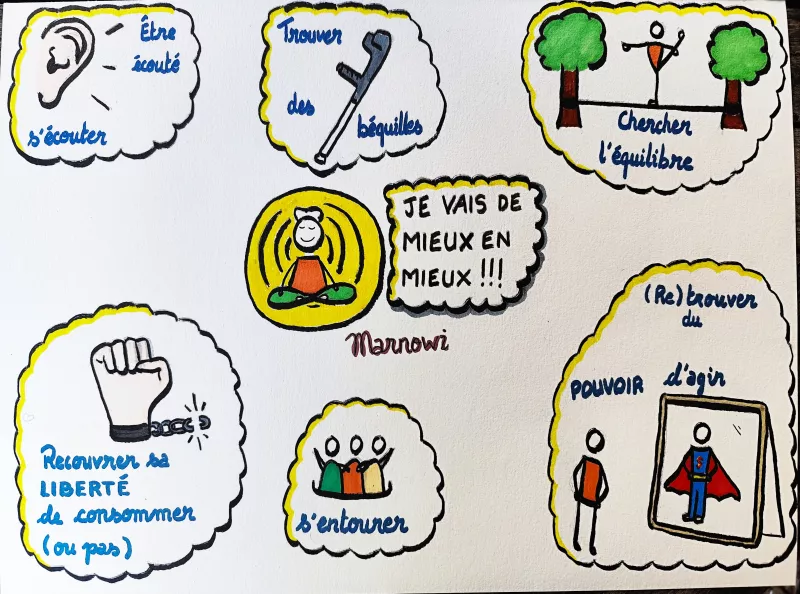 Être
écouté
s'écouter
Trouver
des
béquilles
Chercher
l'équilibre
JE VAIS DE
MIEUX EN
MIEUX !!!
Marnowi
Recouvrer sa
LIBERTÉ
de consommer
(ou pas)
s'entourer
(Re)trouver
du
POUVOIR d'agir
S